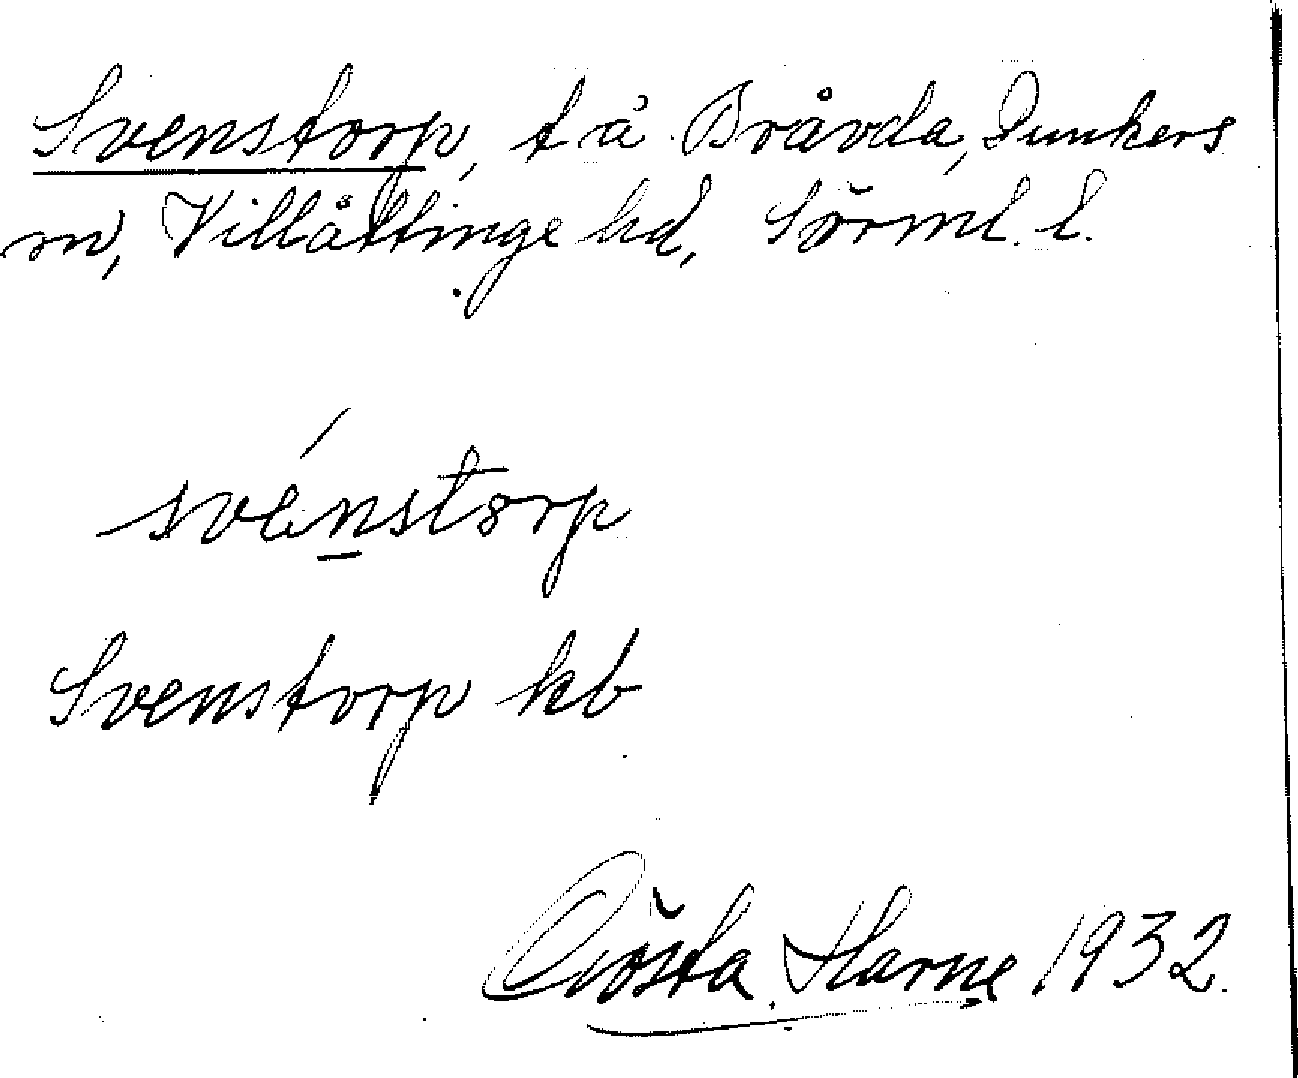 Svenstorp, t å Bråvda, Dunkers
sn, Villåttinge hd, Sörml. l.
svénstorp
Svenstorp kb
Gösta Harne 1932.